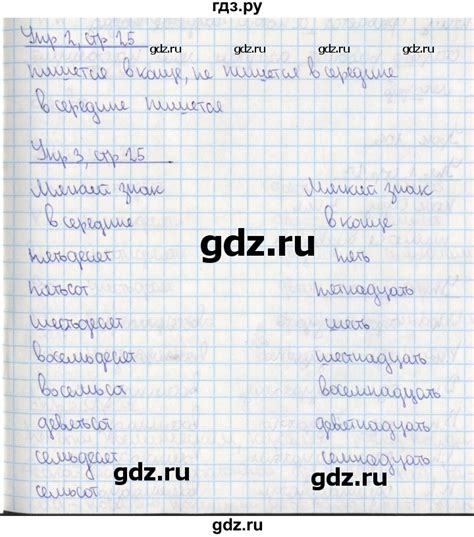 гдз.ру
Упр 2, стр 25
пишется в конце, не пишется в середине
в середине пишется
Упр 3, стр 25
Мягкий знак Мягкий знак
в середине в конце
пятьдесят пять
пятьсот пятнадцать
шестьдесят шесть
восемьдесят шестнадцать
восемьсот восемнадцать
девятьсот девятнадцать
семьдесят семнадцать
семьсот
gdz.ru
gdz.ru
gdz.ru
gdz.ru
gdz.ru
gdz.ru
gdz.ru
gdz.ru
gdz.ru